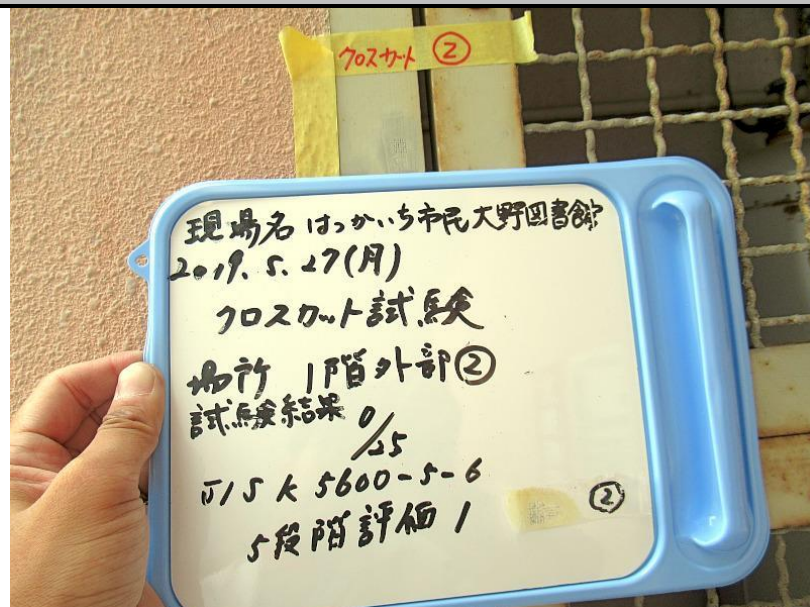 クロスカット ②
現場名 はつかいち市民大野図書館
2019. 5. 27(月)
クロスカット試験
場所 1階外部②
試験結果 0/25
JIS K 5600-5-6
5段階評価 1
②